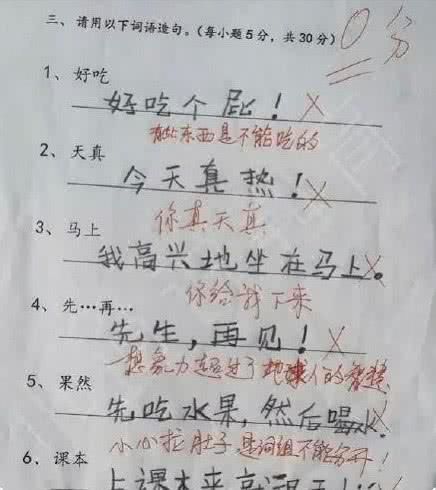 三、请用以下词语造句。(每小题5分，共30分)
0分
1、好吃
好吃个屁！
有些东西是不能吃的
2、天真
今天真热！
你真天真
3、马上
我高兴地坐在马上。
你给我下来
4、先…再…
先生，再见！
想象力超过了地球人的智慧
5、果然
先吃水果，然后喝水。
小心拉肚子，是词组不能分开！
6、课本
上课本来就